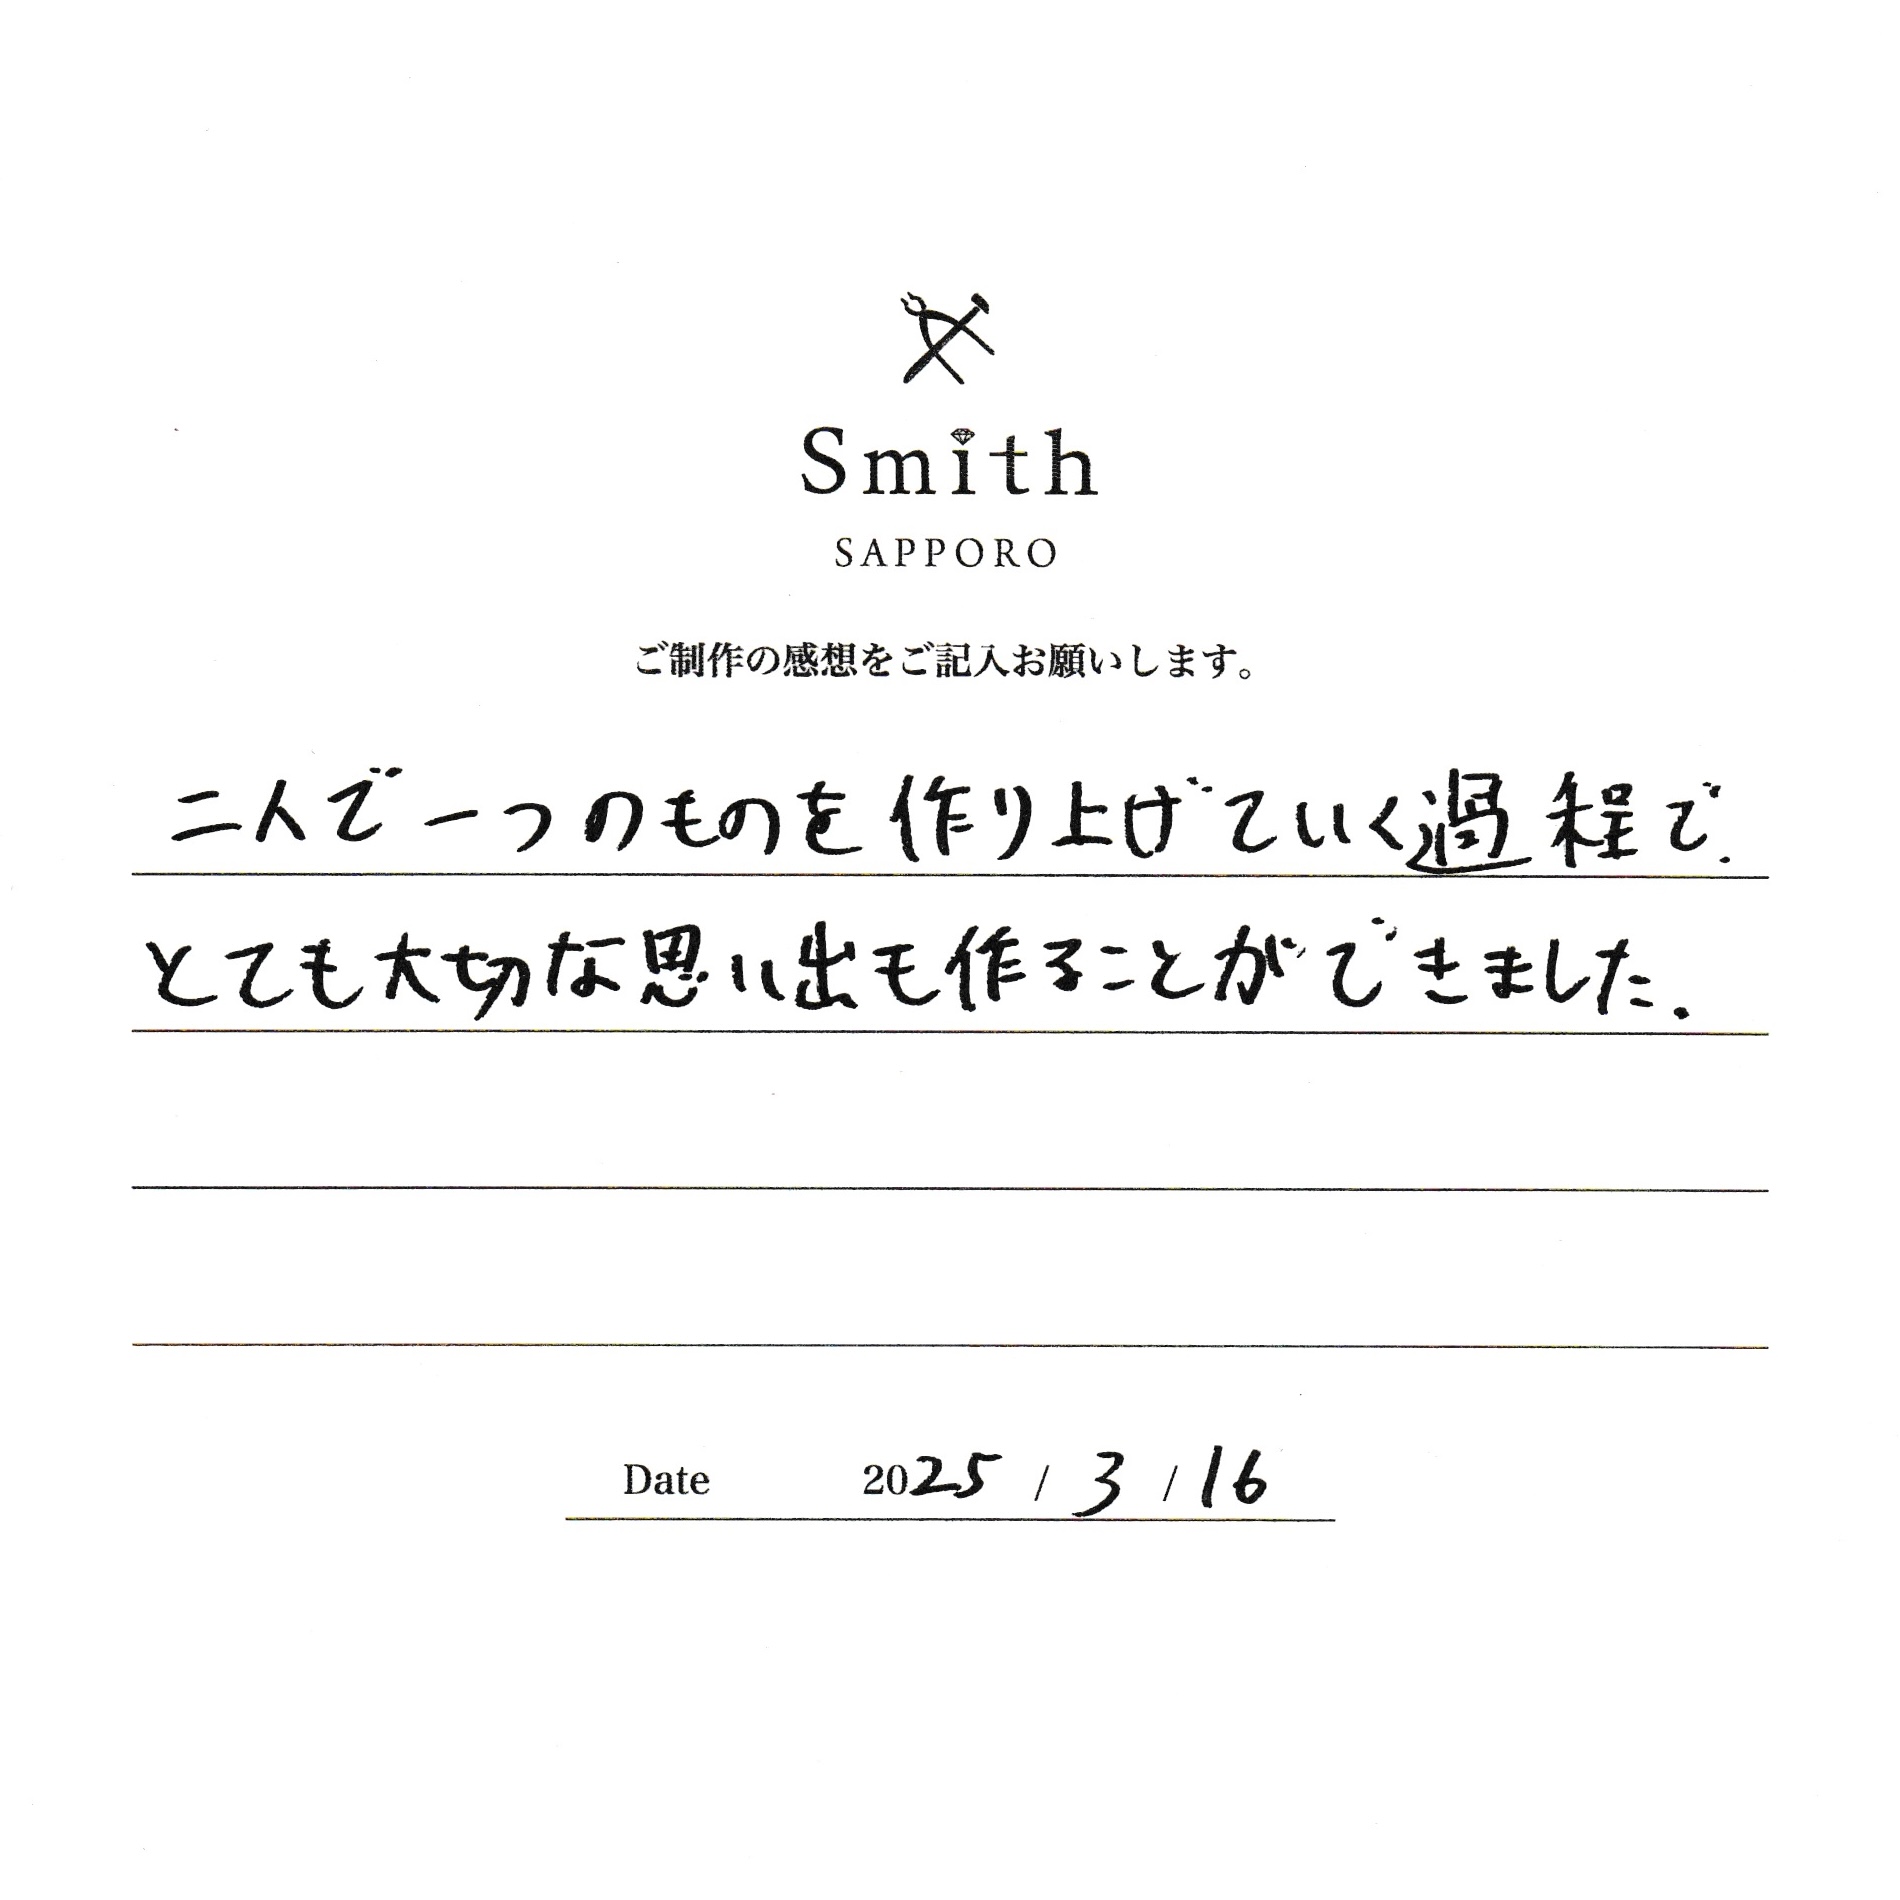 Smith
SAPPORO
ご制作の感想をご記入お願いします。
二人で一つのものを作り上げていく過程で、
とても大切な思い出も作ることができました。
Date 2025 / 3 / 16